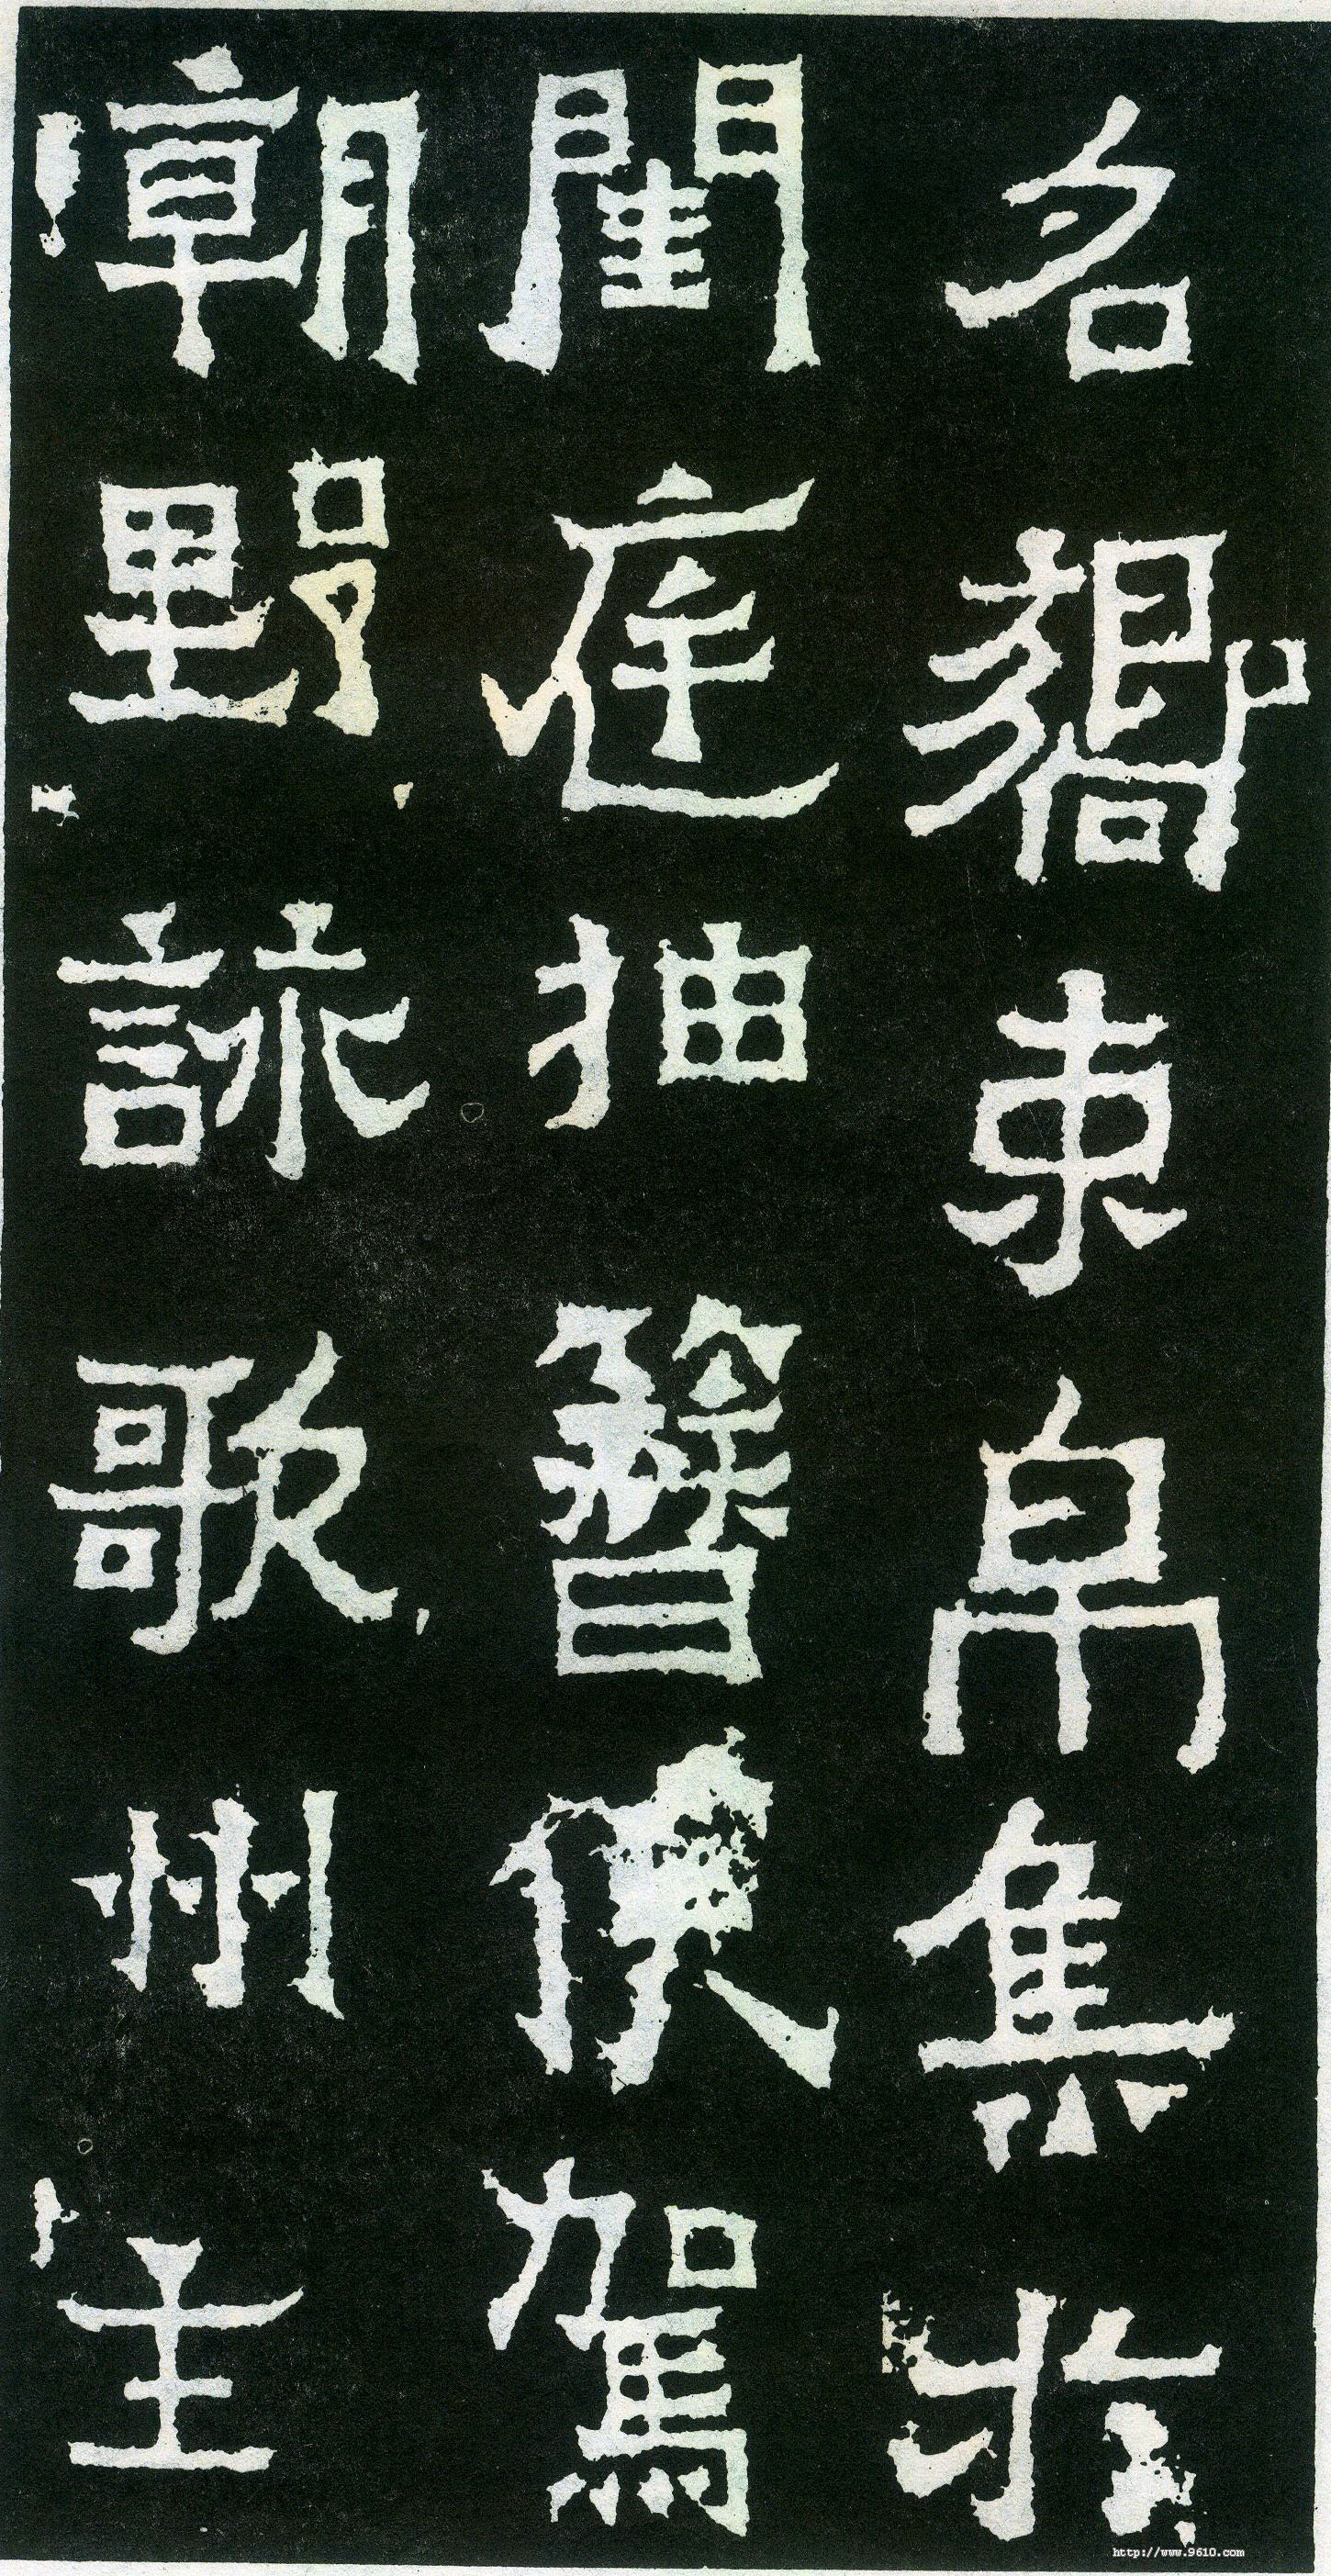 名嚮束帛集於
閨庭抽簪駕
朝野詠歌州主
http://www.9610.com